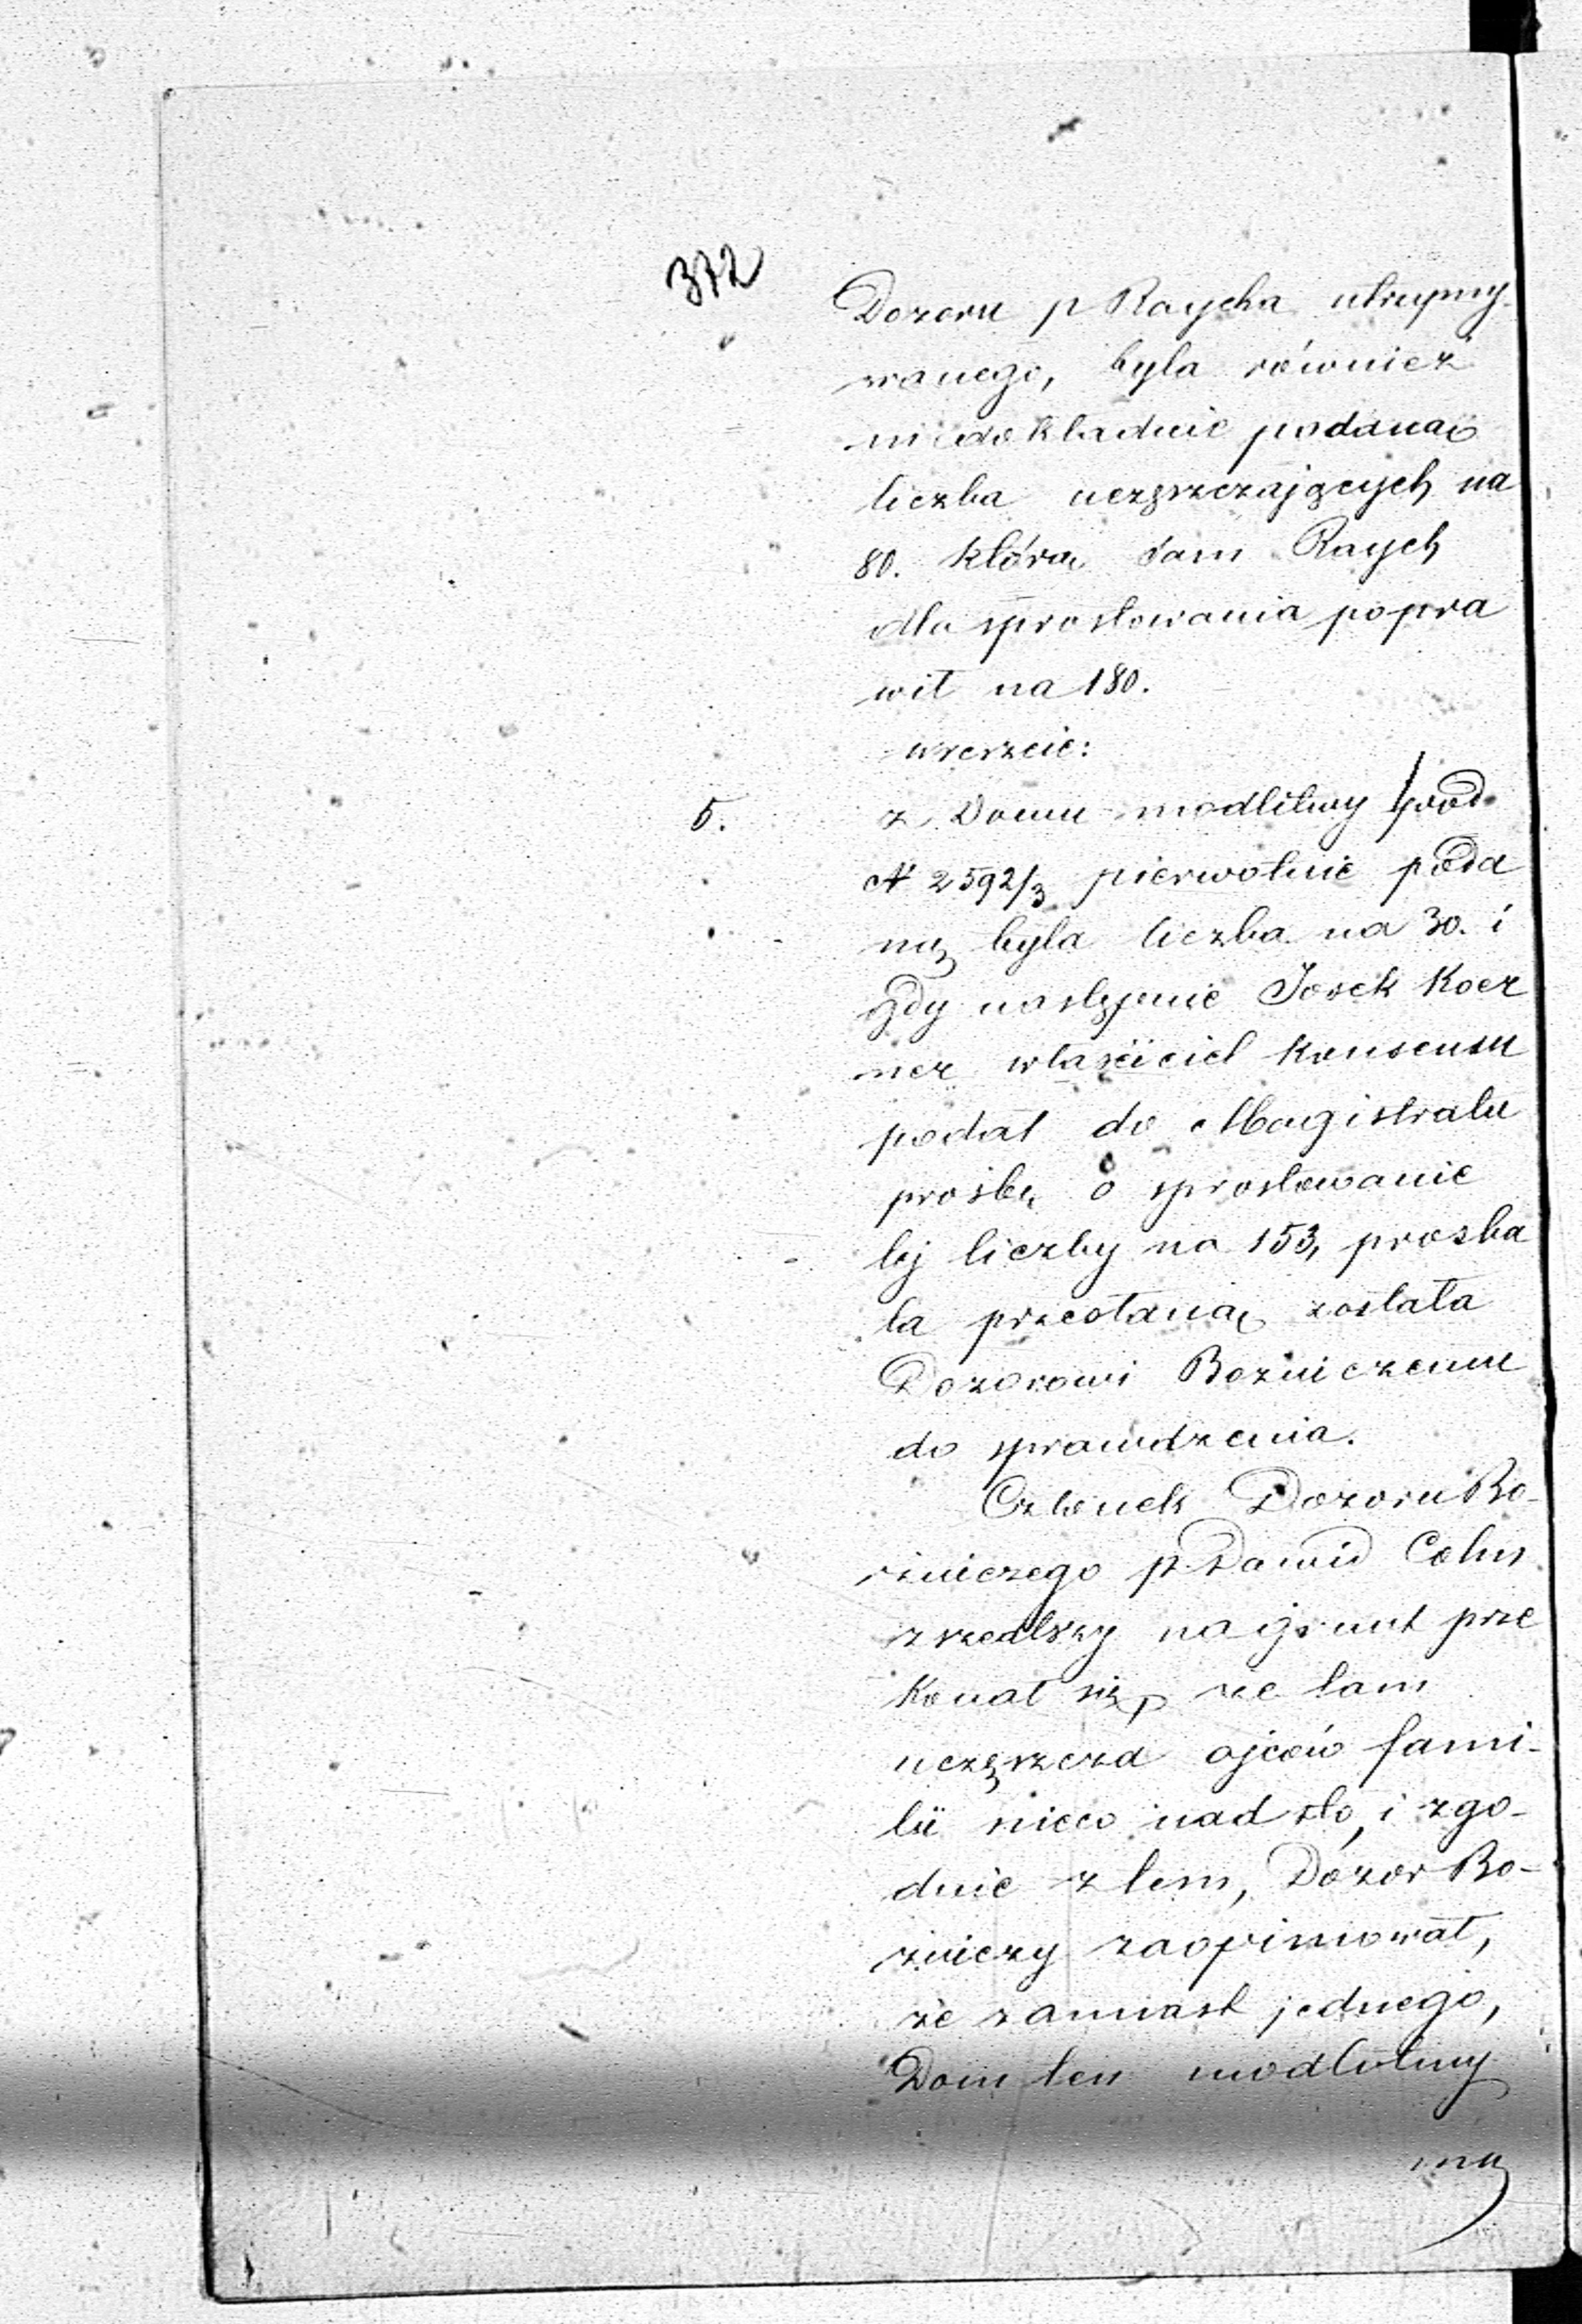 372
Dozoru p Raycha utrzymy-
wanego, była również
niedokładnie podaną
liczba uczęszczających na
80. którą sam Raych
dla sprostowania popra
wił na 180.
wreszcie:
5. z Domu modlitwy pod
N 2592/3 pierwotnie poda
ną była liczba na 30. i
gdy następnie Josek Kocz
ner właściciel konsensu
podał do Magistratu
prośbę o sprostowanie
tej liczby na 153, prośba
ta przesłaną została
Dozorowi Bożniczemu
do sprawdzenia.
Członek Dozoru Bo-
żniczego p Dawid Cohn
zszedłszy na grunt prze
konał się, że tam
uczęszcza ojców fami-
lii nieco nad sto, i zgo-
dnie z tem, Dozór Bo-
żniczy zaopiniował,
że zamiast jednego,
Dom ten modlitwy
ma